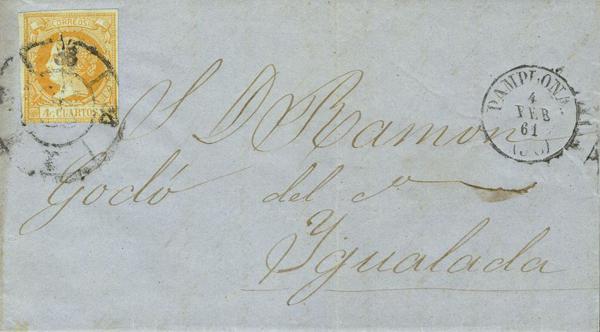 CORREOS
4 CUARTOS
PAMPLONA
4
FEB
61
S. D. Ramon
Godó del c.º
Igualada